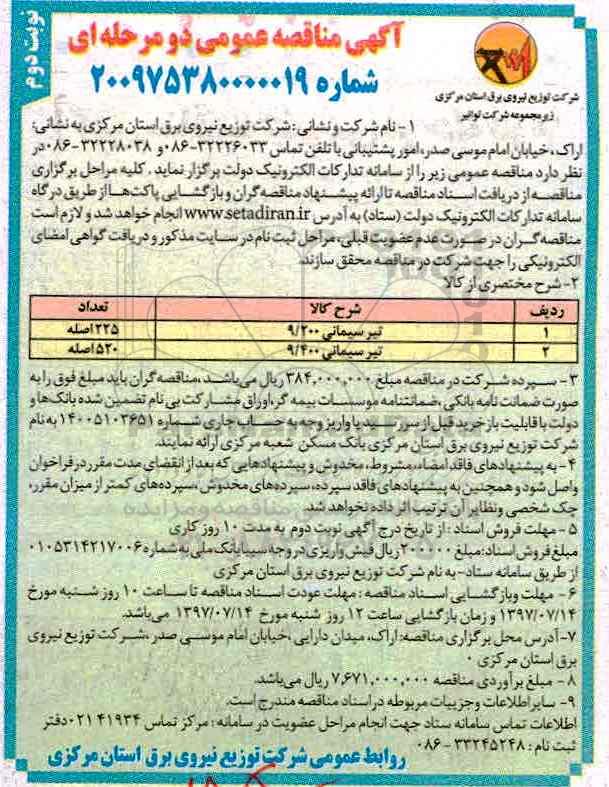 نوبت دوم
آگهی مناقصه عمومی دو مرحله ای
شماره ۲۰۰۹۷۵۳۸۰۰۰۰۰۱۹
شرکت توزیع نیروی برق استان مرکزی
زیرمجموعه شرکت توانیر
۱- نام شرکت و نشانی: شرکت توزیع نیروی برق استان مرکزی به نشانی:
اراک، خیابان امام موسی صدر، امور پشتیبانی با تلفن تماس ۳۲۲۲۶۰۳۳-۰۸۶ و ۳۲۲۲۸۰۳۸-۰۸۶ در
نظر دارد مناقصه عمومی زیر را از سامانه تدارکات الکترونیک دولت برگزار نماید. کلیه مراحل برگزاری
مناقصه از دریافت اسناد مناقصه تا ارائه پیشنهاد مناقصه گران و بازگشایی پاکت ها از طریق درگاه
سامانه تدارکات الکترونیک دولت (ستاد) به آدرس www.setadiran.ir انجام خواهد شد و لازم است
مناقصه گران در صورت عدم عضویت قبلی، مراحل ثبت نام در سایت مذکور و دریافت گواهی امضای
الکترونیکی را جهت شرکت در مناقصه محقق سازند.
۲- شرح مختصری از کالا
ردیف شرح کالا تعداد
۱ تیر سیمانی ۹/۲۰۰ ۲۲۵ اصله
۲ تیر سیمانی ۹/۴۰۰ ۵۲۰ اصله
۳- سپرده شرکت در مناقصه مبلغ ۳۸۴,۰۰۰,۰۰۰ ریال می باشد، مناقصه گران باید مبلغ فوق را به
صورت ضمانت نامه بانکی، ضمانتنامه موسسات بیمه گر، اوراق مشارکت بی نام تضمین شده بانک ها و
دولت با قابلیت باز خرید قبل از سررسید یا واریز وجه به حساب جاری شماره ۱۴۰۰۵۱۰۳۶۵۱ به نام
شرکت توزیع نیروی برق استان مرکزی بانک مسکن شعبه مرکزی ارائه نمایند.
۴- به پیشنهادهای فاقد امضاء، مشروط، مخدوش و پیشنهادهایی که بعد از انقضای مدت مقرر در فراخوان
واصل شود و همچنین به پیشنهادهای فاقد سپرده، سپرده های مخدوش، سپرده های کمتر از میزان مقرر،
چک شخصی و نظایر آن ترتیب اثر داده نخواهد شد.
۵- مهلت فروش اسناد: از تاریخ درج آگهی نوبت دوم به مدت ۱۰ روز کاری
مبلغ فروش اسناد: مبلغ ۲۰۰۰۰۰ ریال فیش واریزی در وجه سیبا بانک ملی به شماره ۰۱۰۵۳۱۴۲۱۷۰۰۶
از طریق سامانه ستاد- به نام شرکت توزیع نیروی برق استان مرکزی
۶- مهلت و بازگشایی اسناد مناقصه: مهلت عودت اسناد مناقصه تا ساعت ۱۰ روز شنبه مورخ
۱۳۹۷/۰۷/۱۴ و زمان بازگشایی ساعت ۱۲ روز شنبه مورخ ۱۳۹۷/۰۷/۱۴ می باشد.
۷- آدرس محل برگزاری مناقصه: اراک، میدان دارایی، خیابان امام موسی صدر، شرکت توزیع نیروی
برق استان مرکزی.
۸- مبلغ برآوردی مناقصه ۷,۶۷۱,۰۰۰,۰۰۰ ریال می باشد.
۹- سایر اطلاعات و جزییات مربوطه در اسناد مناقصه مندرج است.
اطلاعات تماس سامانه ستاد جهت انجام مراحل عضویت در سامانه: مرکز تماس ۴۱۹۳۴ ۰۲۱ دفتر
ثبت نام: ۳۳۲۴۵۲۴۸-۰۸۶
روابط عمومی شرکت توزیع نیروی برق استان مرکزی